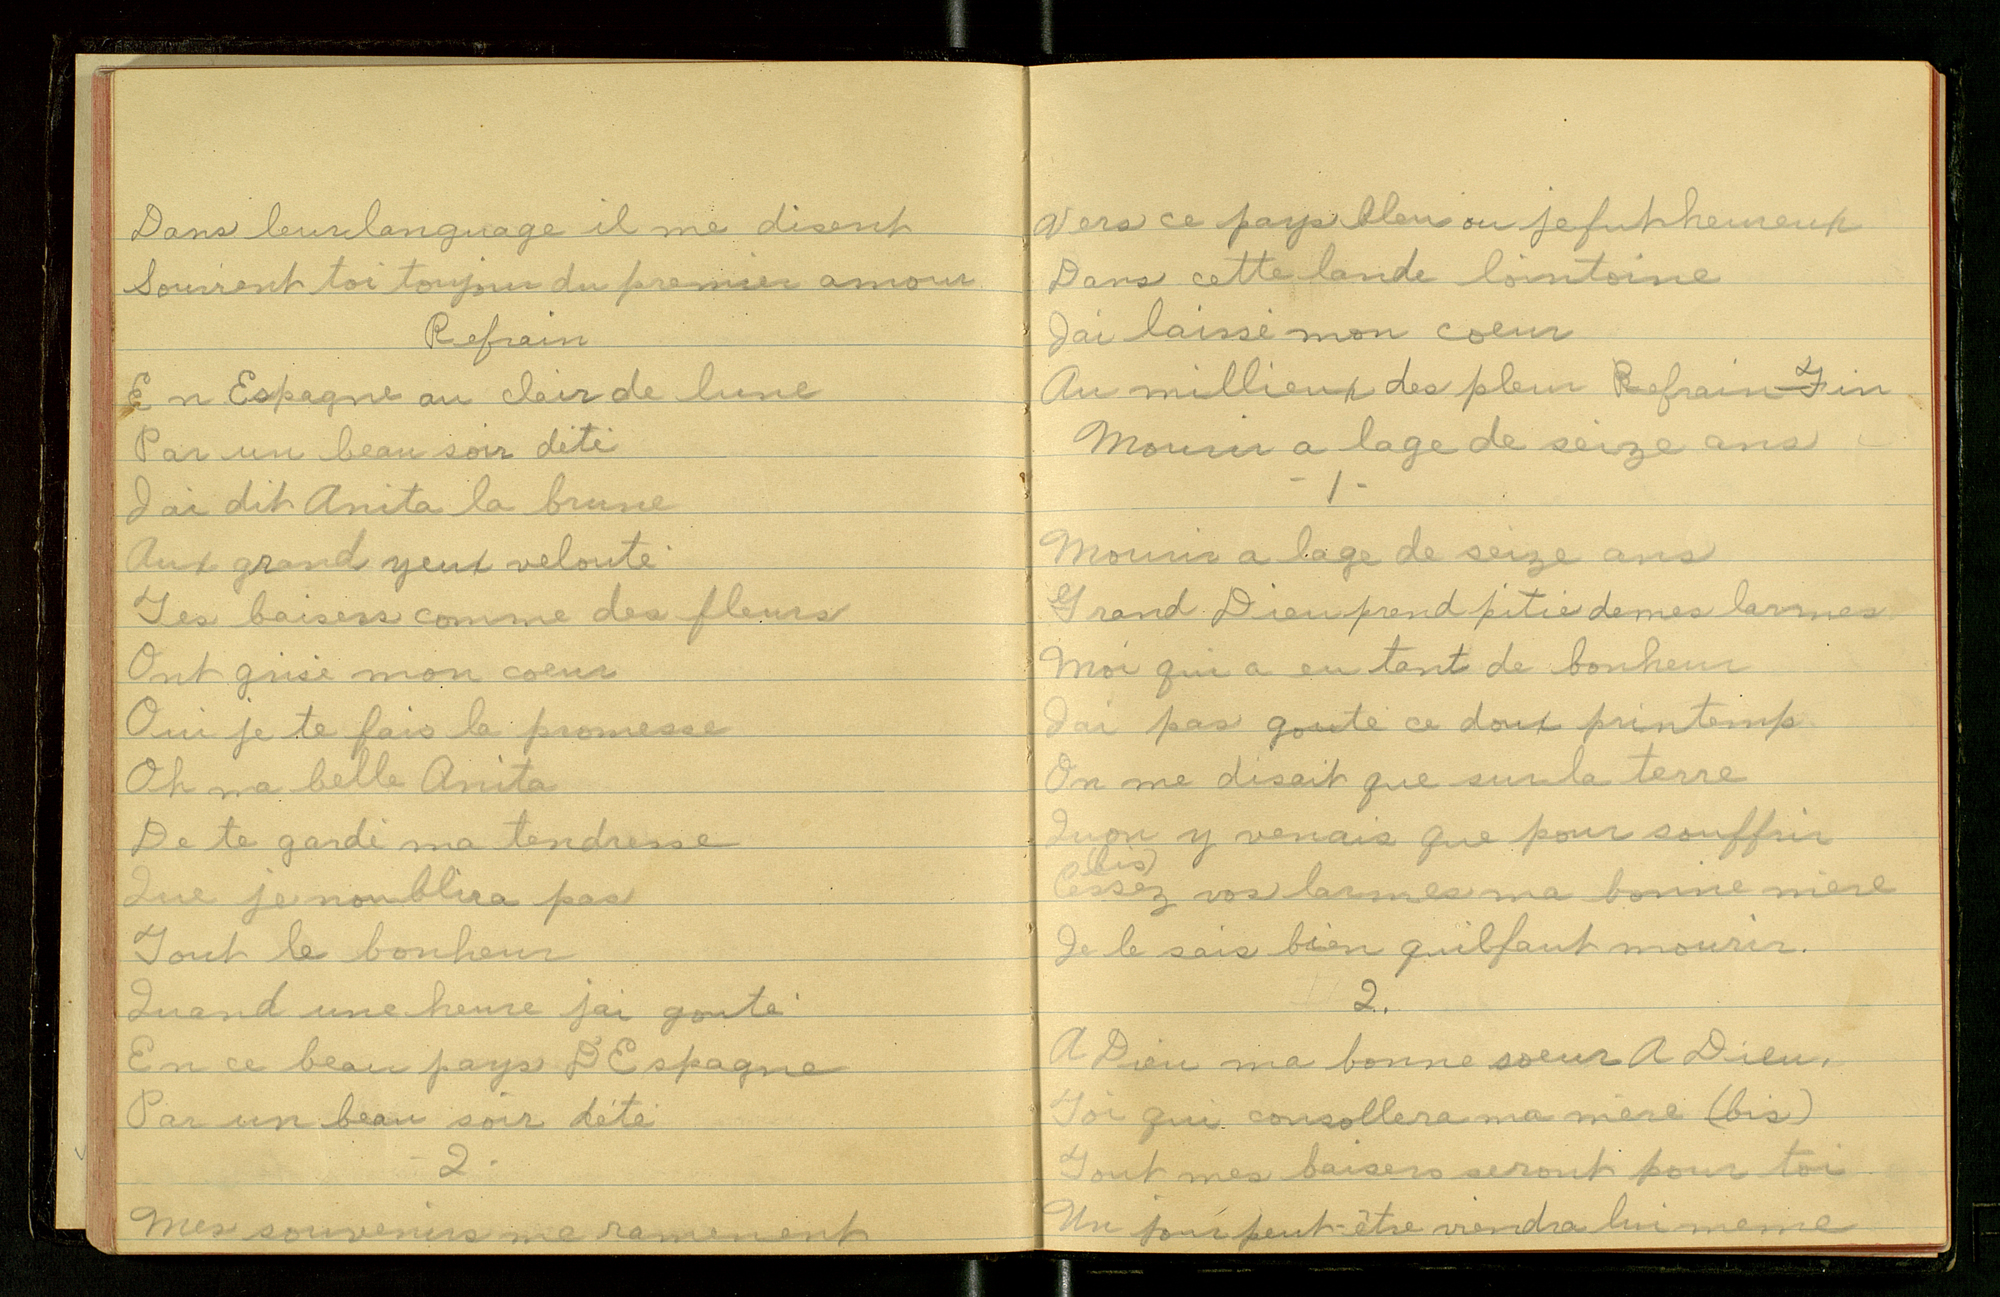 Dans leur language il me disent
Souvient toi toujour du premier amour
Refrain
En Espagne au clair de lune
Par un beau soir dété
Jai dit Anita la brune
Aux grand yeux velouté
Tes baisers comme des fleurs
Ont grisé mon coeur
Oui je te fais la promesse
Oh ma belle Anita
De te gardé ma tendresse
Que je noublira pas
Tout le bonheur
Quand une heure jai gouté
En ce beau pays D'Espagne
Par un beau soir dété
- 2 -
Mes souvenirs me ramenent
Vers ce pays bleu ou je fut heureux
Dans cette lande lointoine
Jai laissé mon coeur
Au millieux des pleur Refrain - Fin
Mourir a lage de seize ans
- 1 -
Mourir a lage de seize ans
Grand Dieu prend pitié de mes larmes
Moi qui a eu tant de bonheur
Jai pas gouté ce doux printemp
On me disait que sur la terre
Quon y venais que pour souffrir
(bis)
Cessez vos larmes ma bonne mère
Je le sais bien quil faut mourir.
2.
A Dieu ma bonne soeur A Dieu,
Toi qui consollera ma mère (bis)
Tout mes baisers seront pour toi
Un jour peut-être viendra lui meme